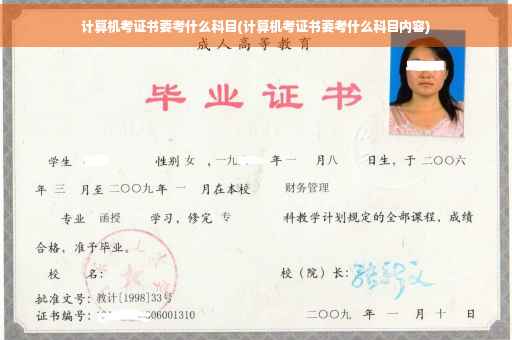 计算机考证书要考什么科目(计算机考证书要考什么科目内容)
成人高等教育
毕业证书
学生 性别 女 ，一九 年 一 月八 日生，于 二〇〇六
年 三 月至 二〇〇九年 一 月在本校 财务管理
专业 函授 学习，修完 专 科教学计划规定的全部课程，成绩
合格，准予毕业。
校 名： 校（院）长：
批准文号：教计[1998]33号
证书编号： 06001310 二〇〇九 年 一 月 十 日